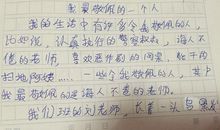 我最敬佩的一个人
我的生活中有许多令我敬佩的人,
比如说,认真执行的警察叔叔,诲人不
倦的老师,喜欢恶作剧的同桌,能干的
扫地阿姨……一些令我敬佩的人,其中
我最敬佩的还是诲人不倦的老师。
我们班的刘老师,长着一头乌黑